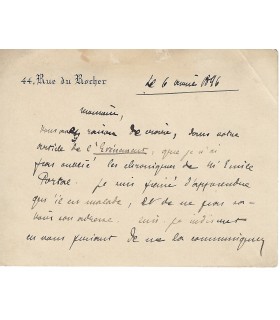 44, Rue du Rocher
Le 6 août 1896
Monsieur,
vous avez raison de croire, dans votre
article de l'Evénement, que je n'ai
pas oublié les chroniques de Mr Emile
je suis peiné d'apprendre
qu'il est malade, et de ne pas
son adresse.
en vous priant de me la communiquer